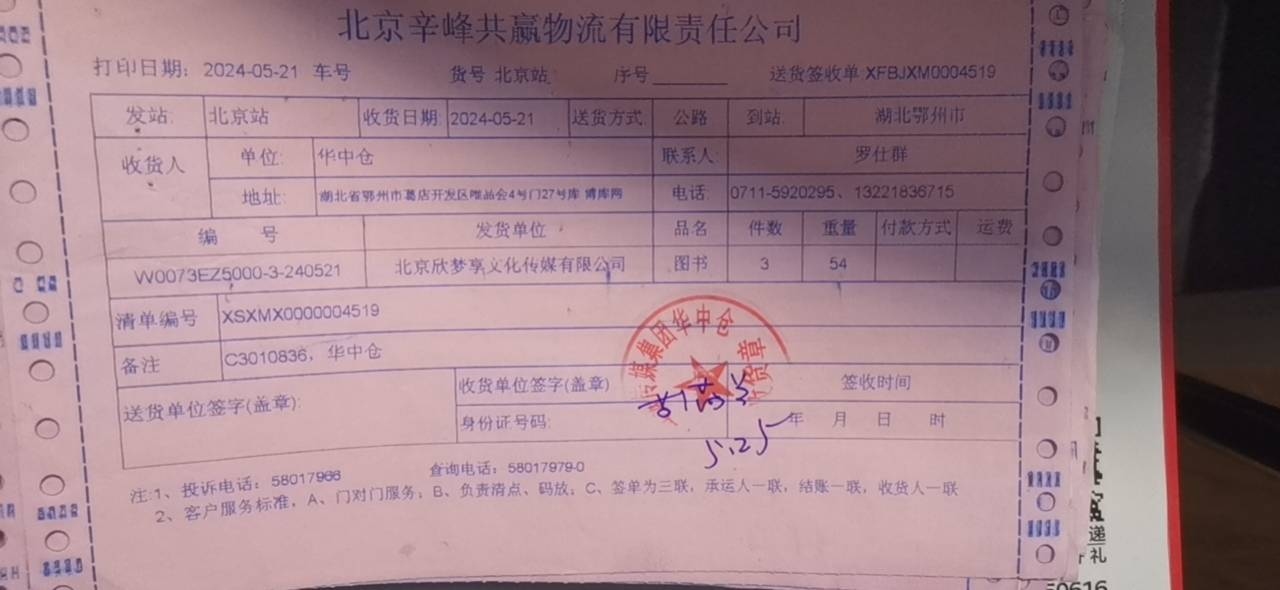 北京辛峰共赢物流有限责任公司
打印日期：2024-05-21 车号 货号 北京站 序号 送货签收单 XFBJXM0004519
发站: 北京站 收货日期: 2024-05-21 送货方式: 公路 到站: 湖北鄂州市
收货人 单位: 华中仓 联系人: 罗仕群
地址: 湖北省鄂州市葛店开发区唯品会4号门27号库 博库网 电话: 0711-5920295、13221836715
编 号 发货单位 品名 件数 重量 付款方式 运费
W0073EZ5000-3-240521 北京欣梦享文化传媒有限公司 图书 3 54
清单编号 XSXMX0000004519
备注 C3010836，华中仓
送货单位签字(盖章): 收货单位签字(盖章) 签收时间
身份证号码: 年 月 日 时
媒集团华中仓
货章
5.25
注:1、投诉电话：58017966 查询电话：58017979-0
2、客户服务标准，A、门对门服务；B、负责清点、码放；C、签单为三联，承运人一联，结账一联，收货人一联
递
礼
50616